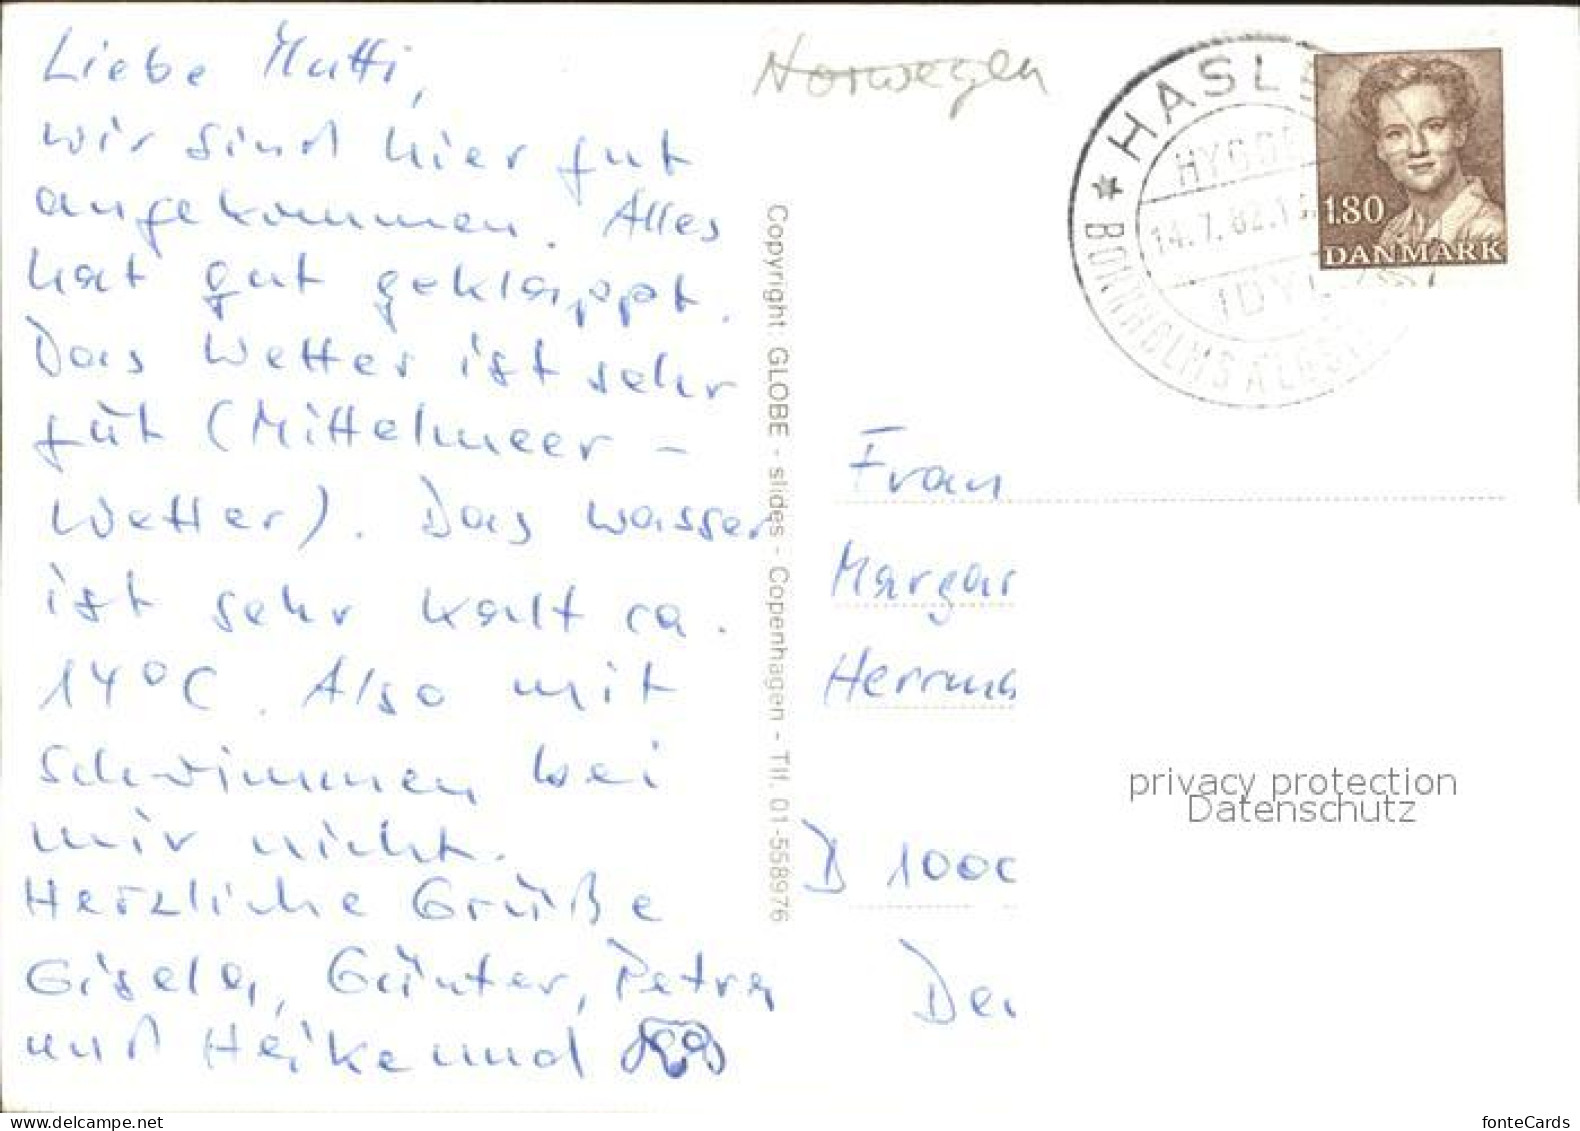 Liebe Mutti,
wir sind hier gut
angekommen. Alles
hat gut geklappt.
Das Wetter ist sehr
gut (Mittelmeer-
Wetter). Das Wasser
ist sehr kalt ca.
14°C. Also mit
Schwimmen bei
mir nicht.
Herzliche Grüße
Gisela, Günter, Petra
und Heike und
Copyright: GLOBE - slides - Copenhagen - Tlf. 01-558976
Norwegen
HASLE
HYGGE
14.7.82.
IDYL
BORNHOLMS
1.80
DANMARK
Frau
Margar
Herrma
D 1000
privacy protection
Datenschutz
www.delcampe.net
fonteCards